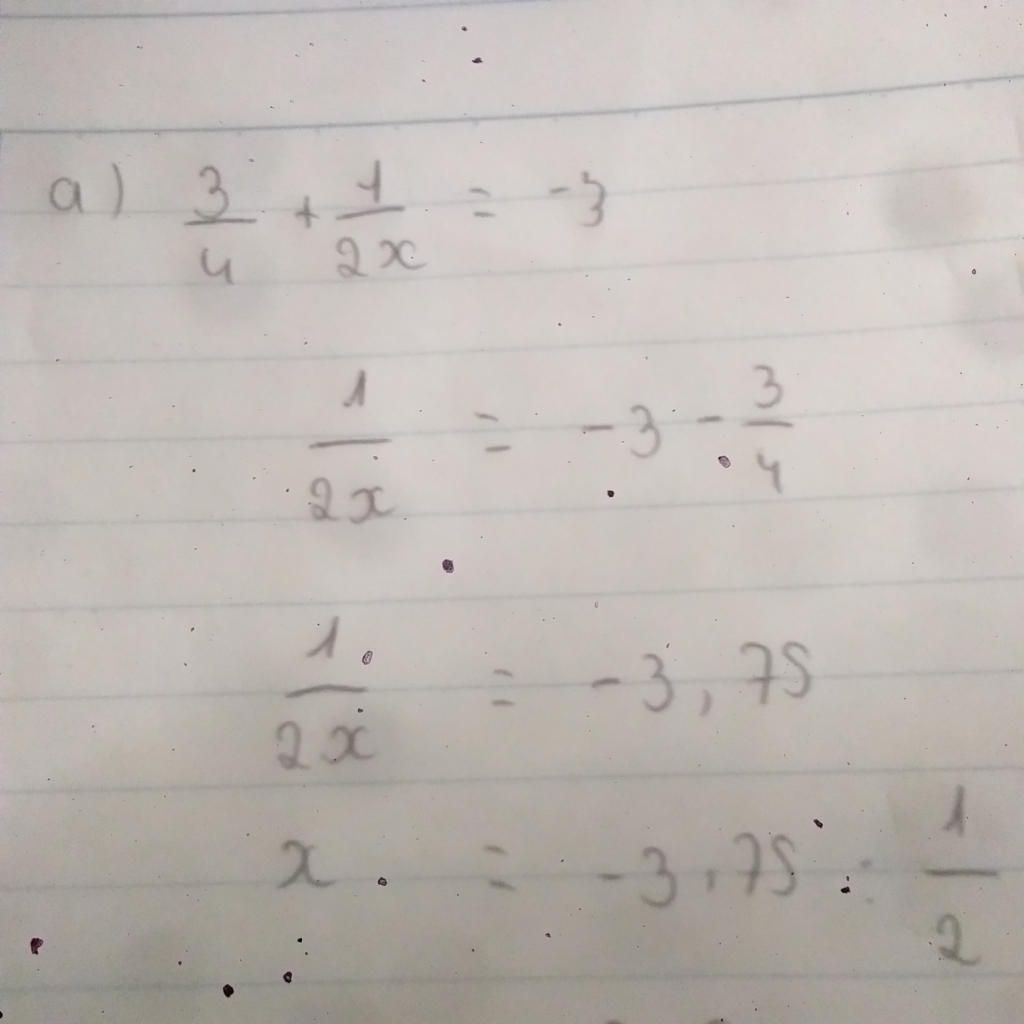 a) 3/4 + 1/2x = -3
1/2x = -3 - 3/4
1/2x = -3,75
x = -3,75 : 1/2